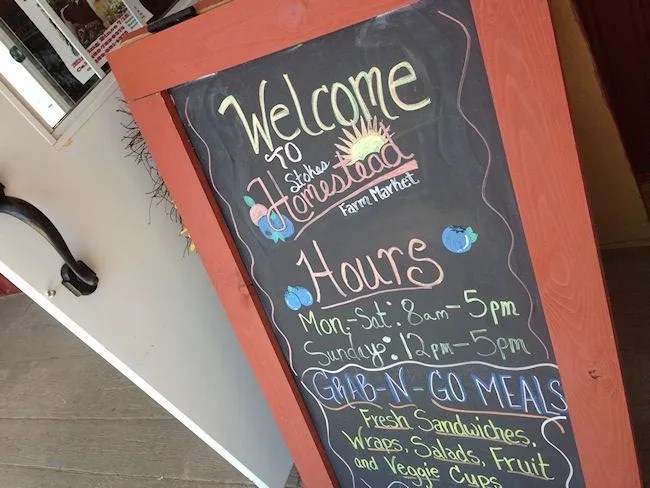 Welcome
TO
Stokes
Homestead
Farm Market
Hours
Mon.-Sat: 8am-5pm
Sunday: 12pm-5pm
GRAB-N-GO MEALS
Fresh Sandwiches,
Wraps, Salads, Fruit
and Veggie Cups